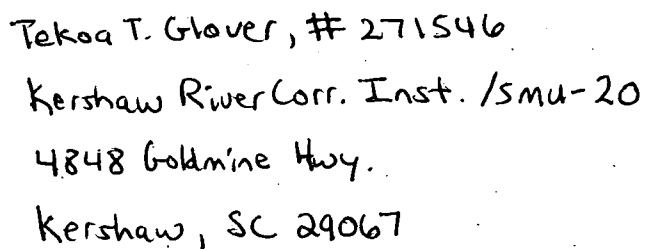 Tekoa T. Glover, # 271546
Kershaw River Corr. Inst. /smu-20
4848 Goldmine Hwy.
Kershaw, SC 29067